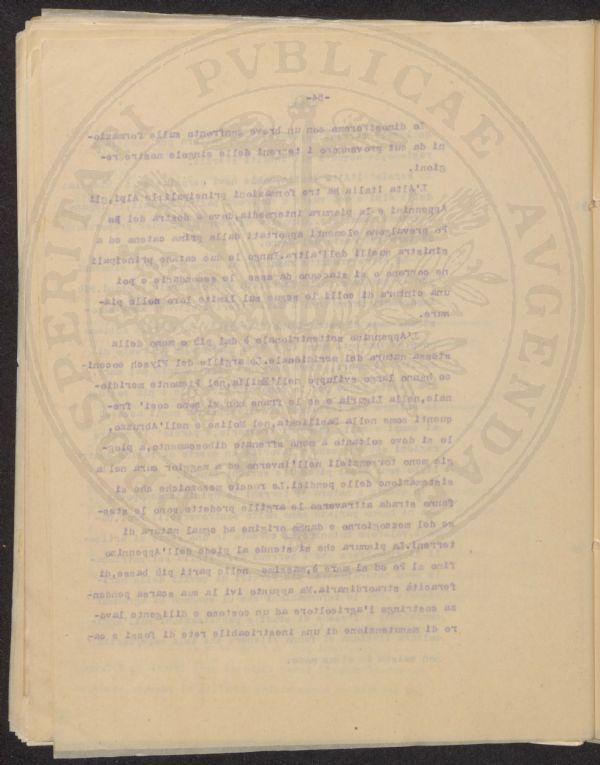 PROSPERITATI PVBLICAE AVGENDAE
-54-
lo dimostreremo con un breve confronto sulle formazio-
ni da cui provengono i terreni delle singole nostre re-
gioni.
L'Alta Italia ha tre formazioni principali: le Alpi, gli
Appennini e la pianura intermedia, dove a destra del
Po prevalgono elementi apportati dalla prima catena ed a
sinistra quelli dell'altra. Lungo le due catene principali
ne corrono o si staccano da esse le secondarie e poi
una cintura di colli le segna sul limite loro nella pia-
nura.
L'Appennino settentrionale è dal più o meno della
stessa natura del meridionale. Le argille del Flysch eoceni-
co hanno largo sviluppo nell'Emilia, nel Piemonte meridio-
nale, nella Liguria e se le frane non vi sono così fre-
quenti come nella Basilicata, nel Molise e nell'Abruzzo,
lo si deve soltanto a meno sfrenato disboscamento, a piog-
gie meno torrenziali nell'inverno ed a maggior cura nella
sistemazione delle pendici. Le roccie mesozoiche che si
fanno strada attraverso le argille predette sono le stes-
se del mezzogiorno e danno origine ad egual natura di
terreni. La pianura che si stende al piede dell'Appennino
fino al Po ed al mare è, massime nelle parti più basse, di
feracità straordinaria. Ma appunto ivi la sua scarsa penden-
za costringe l'agricoltore ad un costoso e diligente lavo-
ro di manutenzione di una inestricabile rete di fossi e ca-